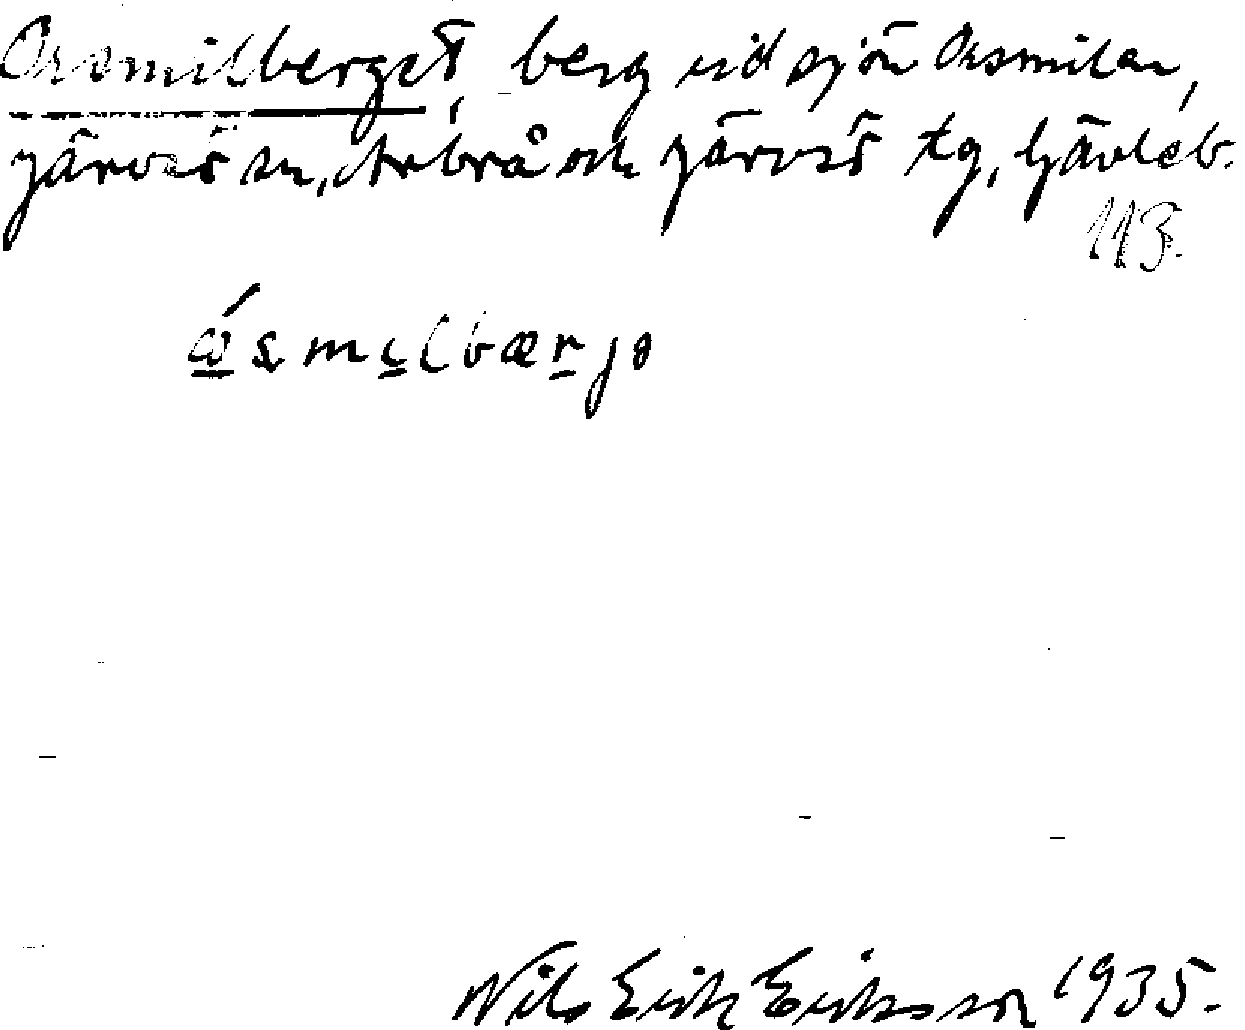 Orsmilberget, berg vid sjön Orsmilan,
Järvsö sn, Arbrå och Järvsö tg, Gävleb.
113.
ǿsmịlbæṛjə
Nils Erik Eriksson 1935.